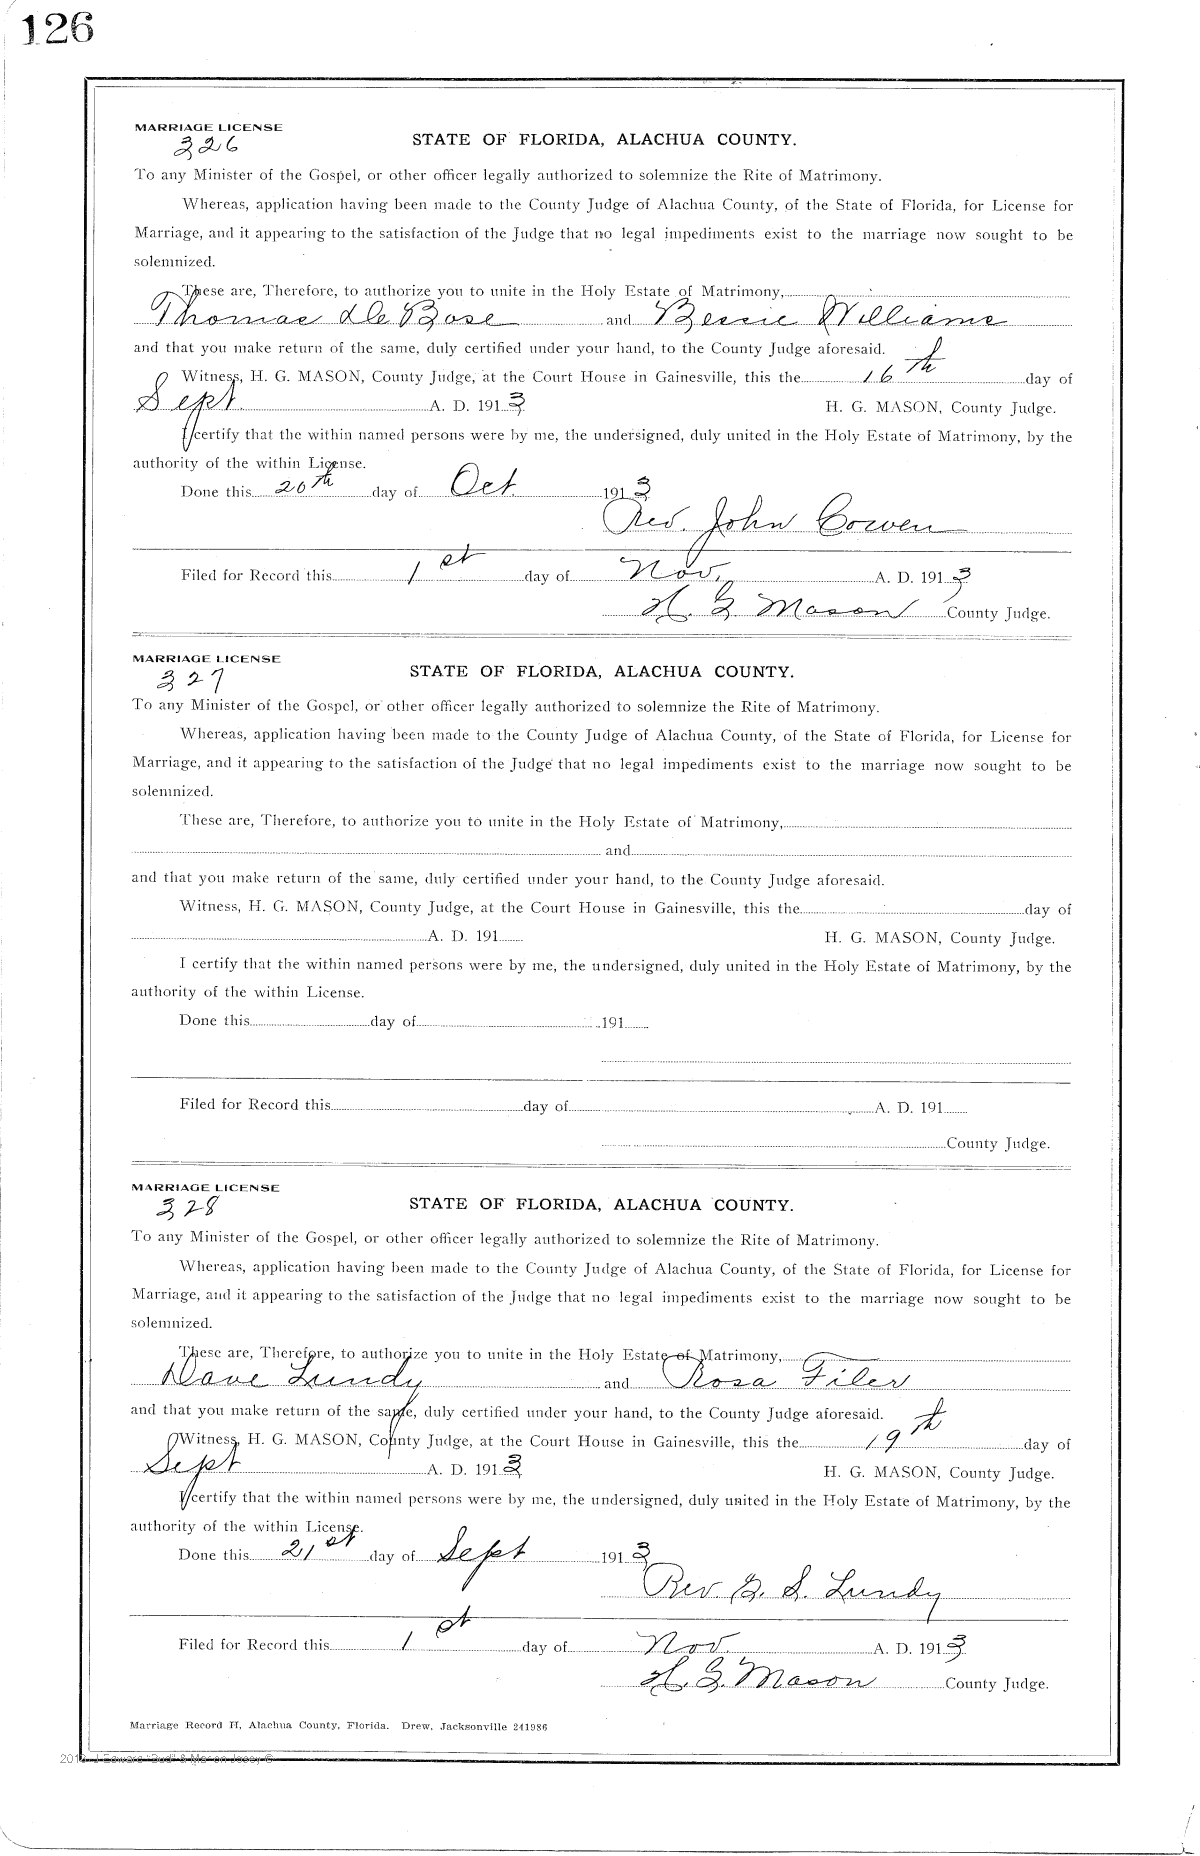 126
MARRIAGE LICENSE
326
STATE OF FLORIDA, ALACHUA COUNTY.
To any Minister of the Gospel, or other officer legally authorized to solemnize the Rite of Matrimony.
Whereas, application having been made to the County Judge of Alachua County, of the State of Florida, for License for
Marriage, and it appearing to the satisfaction of the Judge that no legal impediments exist to the marriage now sought to be
solemnized.
These are, Therefore, to authorize you to unite in the Holy Estate of Matrimony,
Thomas De Bose and Bessie Williams
and that you make return of the same, duly certified under your hand, to the County Judge aforesaid.
Witness, H. G. MASON, County Judge, at the Court House in Gainesville, this the 16th day of
Sept A. D. 1913 H. G. MASON, County Judge.
I certify that the within named persons were by me, the undersigned, duly united in the Holy Estate of Matrimony, by the
authority of the within License.
Done this 20th day of Oct. 1913
Rev. John Cowen
Filed for Record this 1st day of Nov. A. D. 1913
H. G Mason County Judge.
MARRIAGE LICENSE
327
STATE OF FLORIDA, ALACHUA COUNTY.
To any Minister of the Gospel, or other officer legally authorized to solemnize the Rite of Matrimony.
Whereas, application having been made to the County Judge of Alachua County, of the State of Florida, for License for
Marriage, and it appearing to the satisfaction of the Judge that no legal impediments exist to the marriage now sought to be
solemnized.
These are, Therefore, to authorize you to unite in the Holy Estate of Matrimony,
and
and that you make return of the same, duly certified under your hand, to the County Judge aforesaid.
Witness, H. G. MASON, County Judge, at the Court House in Gainesville, this the day of
A. D. 191 H. G. MASON, County Judge.
I certify that the within named persons were by me, the undersigned, duly united in the Holy Estate of Matrimony, by the
authority of the within License.
Done this day of 191
Filed for Record this day of A. D. 191
County Judge.
MARRIAGE LICENSE
328
STATE OF FLORIDA, ALACHUA COUNTY.
To any Minister of the Gospel, or other officer legally authorized to solemnize the Rite of Matrimony.
Whereas, application having been made to the County Judge of Alachua County, of the State of Florida, for License for
Marriage, and it appearing to the satisfaction of the Judge that no legal impediments exist to the marriage now sought to be
solemnized.
These are, Therefore, to authorize you to unite in the Holy Estate of Matrimony,
Dave Lundy and Rosa Filer
and that you make return of the same, duly certified under your hand, to the County Judge aforesaid.
Witness, H. G. MASON, County Judge, at the Court House in Gainesville, this the 19th day of
Sept A. D. 1913 H. G. MASON, County Judge.
I certify that the within named persons were by me, the undersigned, duly united in the Holy Estate of Matrimony, by the
authority of the within License.
Done this 21st day of Sept 1913
Rev. G. S. Lundy
Filed for Record this 1st day of Nov. A. D. 1913
H. G. Mason County Judge.
Marriage Record H, Alachua County, Florida. Drew, Jacksonville 241986